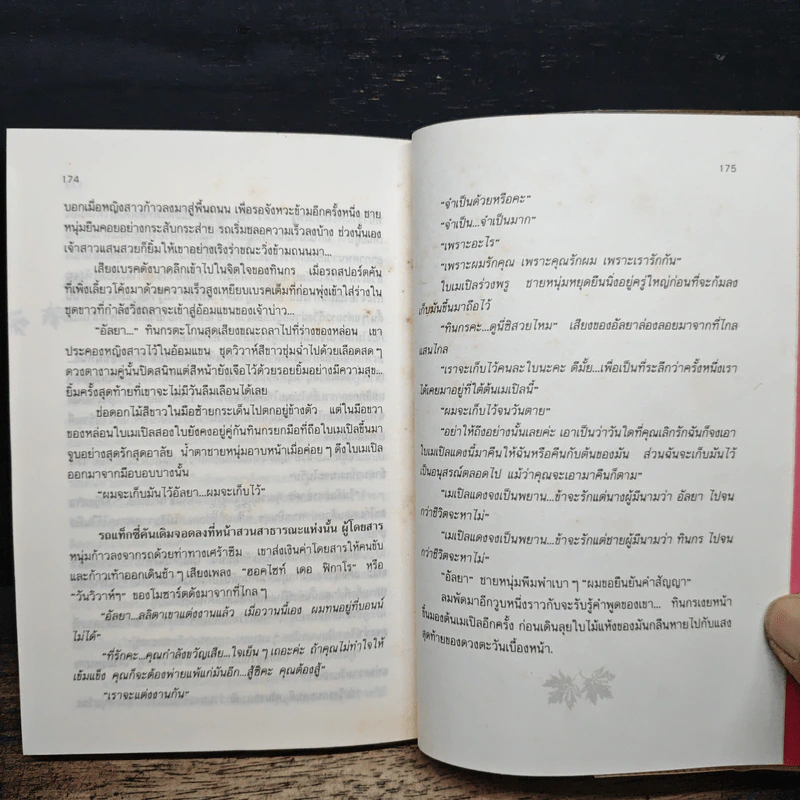 174
บอกเมื่อหญิงสาวก้าวลงมาสู่พื้นถนน เพื่อรอจังหวะข้ามอีกครั้งหนึ่ง ชาย
หนุ่มยืนคอยอย่างกระสับกระส่าย รถเริ่มชลอความเร็วลงบ้าง ช่วงนั้นเอง
เจ้าสาวแสนสวยก็ยิ้มให้เขาอย่างเริงร่าขณะวิ่งข้ามถนนมา...
เสียงเบรคดังบาดลึกเข้าไปในจิตใจของทินกร เมื่อรถสปอร์ตคัน
ที่เพิ่งเลี้ยวโค้งมาด้วยความเร็วสูงเหยียบเบรคเต็มที่ก่อนพุ่งเข้าใส่ร่างใน
ชุดขาวที่กำลังวิ่งถลาจะเข้าสู่อ้อมแขนของเจ้าบ่าว...
"อัลยา..." ทินกรตะโกนสุดเสียงขณะถลาไปที่ร่างของหล่อน เขา
ประคองหญิงสาวไว้ในอ้อมแขน ชุดวิวาห์สีขาวชุ่มฉ่ำไปด้วยเลือดสด ๆ
ดวงตางามคู่นั้นปิดสนิทแต่สีหน้ายังเจือไว้ด้วยรอยยิ้มอย่างมีความสุข...
ยิ้มครั้งสุดท้ายที่เขาจะไม่มีวันลืมเลือนได้เลย
ช่อดอกไม้สีขาวในมือซ้ายกระเด็นไปตกอยู่ข้างตัว แต่ในมือขวา
ของหล่อนใบเมเปิลสองใบยังคงอยู่คู่กันทินกรยกมือที่ถือใบเมเปิลขึ้นมา
จูบอย่างสุดรักสุดอาลัย น้ำตาชายหนุ่มอาบหน้าเมื่อค่อย ๆ ดึงใบเมเปิล
ออกมาจากมือบอบบางนั้น
"ผมจะเก็บมันไว้อัลยา...ผมจะเก็บไว้"
รถแท็กซี่คันเดิมจอดลงที่หน้าสวนสาธารณะแห่งนั้น ผู้โดยสาร
หนุ่มก้าวลงจากรถด้วยท่าทางเศร้าซึม เขาส่งเงินค่าโดยสารให้คนขับ
และก้าวเท้าออกเดินช้า ๆ เสียงเพลง "ฮอคไซท์ เดอ ฟิกาโร" หรือ
"วันวิวาห์ฯ" ของโมซาร์ตดังมาจากที่ไกล ๆ
"อัลยา...ลลิตาเขาแต่งงานแล้ว เมื่อวานนี้เอง ผมทนอยู่ที่บอนน์
ไม่ได้"
"ที่รักคะ...คุณกำลังขวัญเสีย...ใจเย็น ๆ เถอะค่ะ ถ้าคุณไม่ทำใจให้
เข้มแข็ง คุณก็จะต้องพ่ายแพ้แก่มันอีก... สู้ซิคะ คุณต้องสู้"
"เราจะแต่งงานกัน"
175
"จำเป็นด้วยหรือคะ"
"จำเป็น...จำเป็นมาก"
"เพราะอะไร"
"เพราะผมรักคุณ เพราะคุณรักผม เพราะเรารักกัน"
ใบเมเปิลร่วงพรู ชายหนุ่มหยุดยืนนิ่งอยู่ครู่ใหญ่ก่อนที่จะก้มลง
เก็บมันขึ้นมาถือไว้
"ทินกรคะ...ดูนี่ซิสวยไหม" เสียงของอัลยาล่องลอยมาจากที่ไกล
แสนไกล
"เราจะเก็บไว้คนละใบนะคะ ดีมั้ย...เพื่อเป็นที่ระลึกว่าครั้งหนึ่งเรา
ได้เคยมาอยู่ที่ใต้ต้นเมเปิลนี้"
"ผมจะเก็บไว้จนวันตาย"
"อย่าให้ถึงอย่างนั้นเลยค่ะ เอาเป็นว่าวันใดที่คุณเลิกรักฉันก็จงเอา
ใบเมเปิลแดงนี้มาคืนให้ฉันหรือคืนกับต้นของมัน ส่วนฉันจะเก็บมันไว้
เป็นอนุสรณ์ตลอดไป แม้ว่าคุณจะเอามาคืนก็ตาม"
"เมเปิลแดงจงเป็นพยาน...ข้าจะรักแต่นางผู้มีนามว่า อัลยา ไปจน
กว่าชีวิตจะหาไม่"
"เมเปิลแดงจงเป็นพยาน...ข้าจะรักแต่ชายผู้มีนามว่า ทินกร ไปจน
กว่าชีวิตจะหาไม่"
"อัลยา" ชายหนุ่มพึมพำเบา ๆ "ผมขอยืนยันคำสัญญา"
ลมพัดมาอีกวูบหนึ่งราวกับจะรับรู้คำพูดของเขา... ทินกรเงยหน้า
ขึ้นมองต้นเมเปิลอีกครั้ง ก่อนเดินลุยใบไม้แห้งของมันกลืนหายไปกับแสง
สุดท้ายของดวงตะวันเบื้องหน้า.